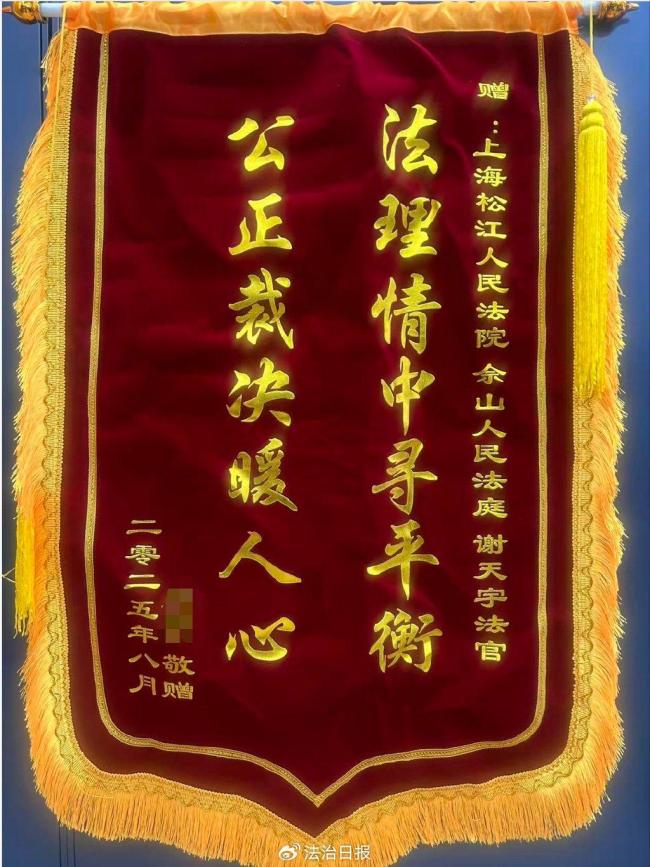 赠：上海松江人民法院 佘山人民法庭 谢天宇法官
法理情中寻平衡
公正裁决暖人心
敬赠
二零二五年八月
法治日报